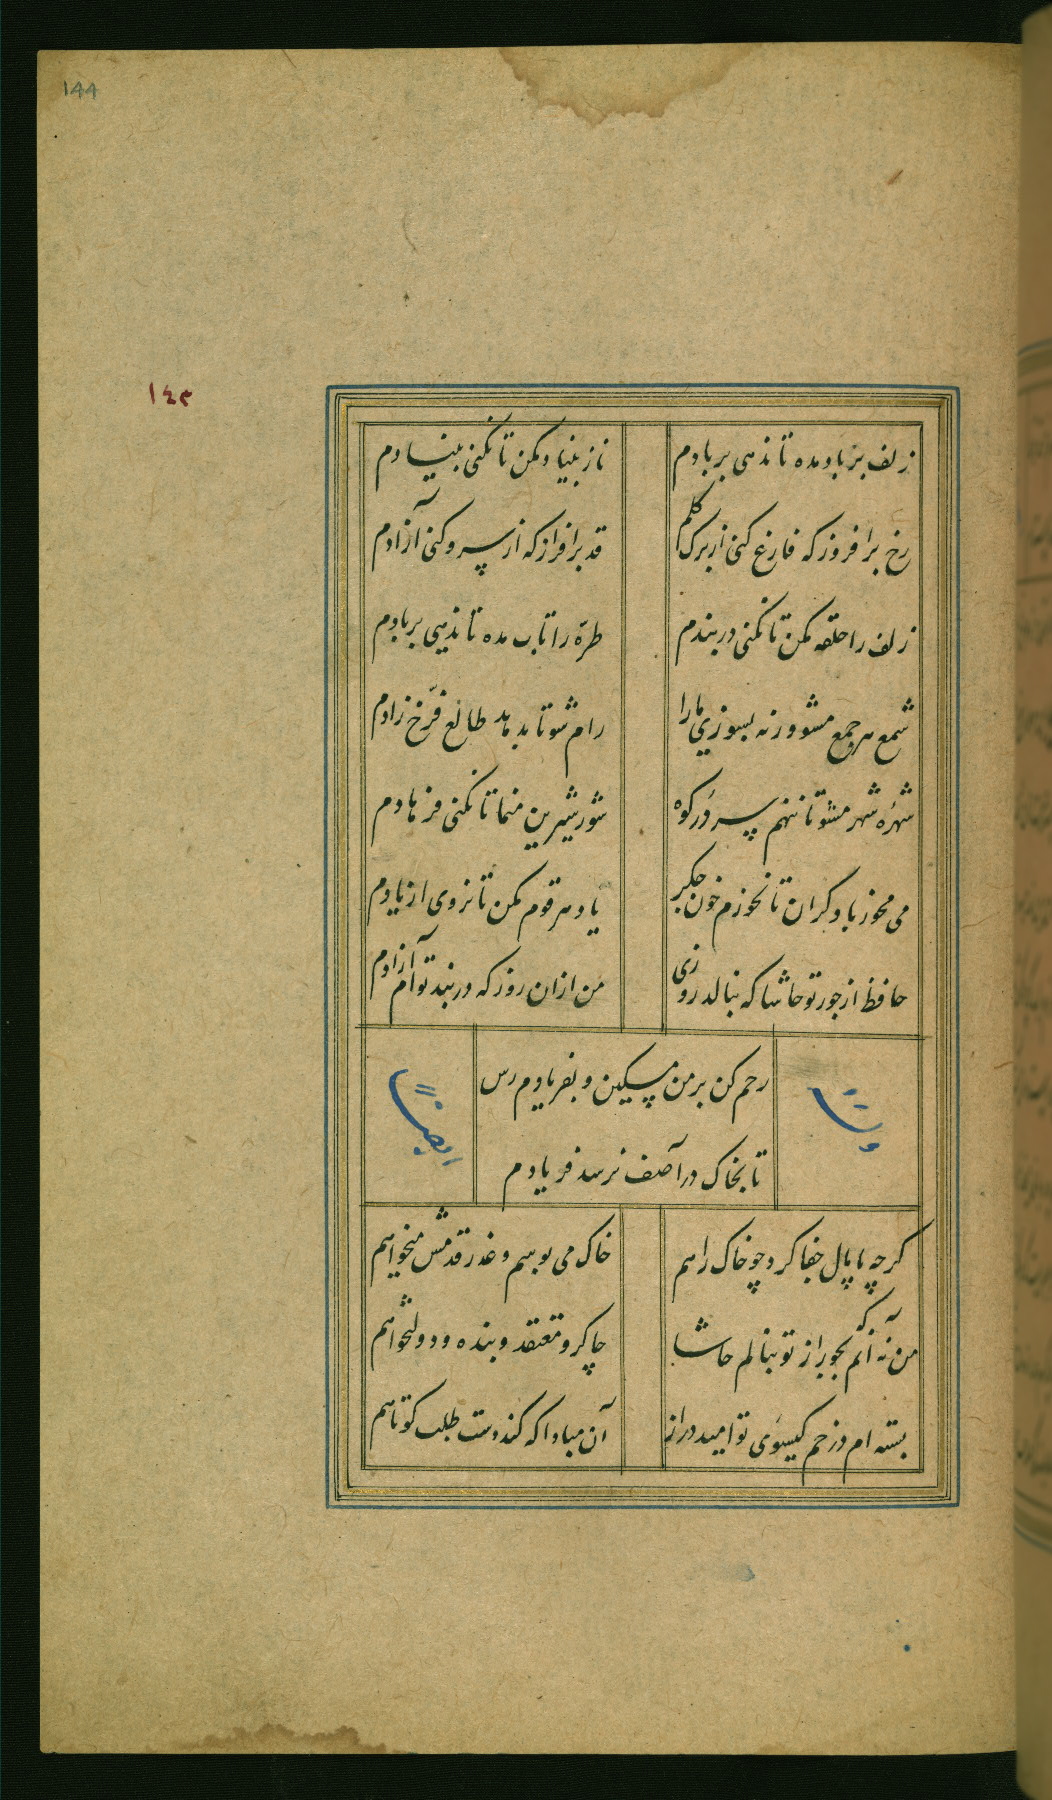 ۱۴۴
۱٤۳
زلف بر باد مده تا ندهی بر بادم
ناز بنیاد مکن تا نکنی بنیادم
رخ برافروز که فارغ کنی از برگ گلم
قد برافراز که از سرو کنی آزادم
زلف را حلقه مکن تا نکنی در بندم
طرّه را تاب مده تا ندهی بر بادم
شمع هر جمع مشو ورنه بسوزی ما را
رام شو تا بدهد طالع فرّخ زادم
شهرهٔ شهر مشو تا ننهم سر در کوه
شور شیرین منما تا نکنی فرهادم
می مخور با دگران تا نخورم خون جگر
یاد هر قوم مکن تا نروی از یادم
حافظ از جور تو حاشا که بنالد روزی
من از آن روز که در بند توام آزادم
رحم کن بر من مسکین و بفریادم رس
تا بخاک در آصف نرسد فریادم
وله
ایضاً
گرچه پامال جفا کرد چو خاک راهم
خاک می بوسم و عذر قدمش میخواهم
من نه آنم که بجور از تو بنالم حاشا
چاکر و معتقد و بنده و دولتخواهم
بسته‌ام در خم گیسوی تو امید دراز
آن مبادا که کند دست طلب کوتاهم